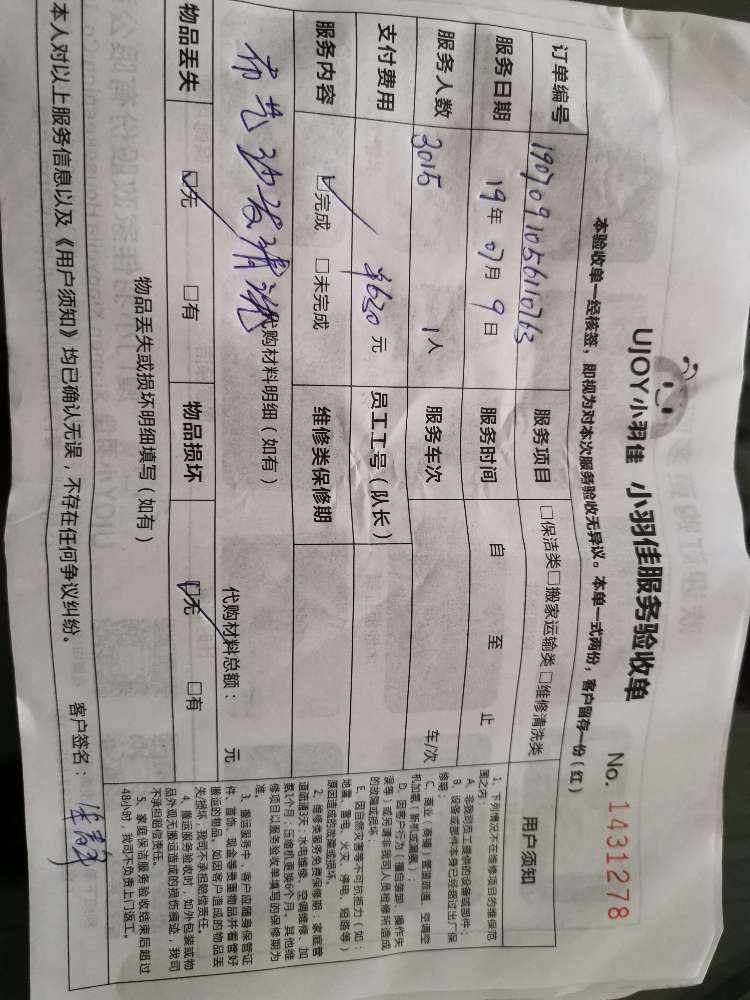 UJOY小羽佳 小羽佳服务验收单
No. 1431278
本验收单一经核签，即视为对本次服务验收无异议。本单一式两份，客户留存一份（红）
订单编号 服务项目 □保洁类□搬家运输类□维修清洗类
服务日期 19年 07月 9日 服务时间 自 至 止
服务人数 3015 1人 服务车次 车/次
支付费用 ¥630 元 员工工号（队长）
服务内容 ☑完成 □未完成 维修类保修期
代购材料明细（如有） 代购材料总额： 元
布艺沙发清洗
物品丢失 ☑无 □有 物品损坏 ☑无 □有
物品丢失或损坏明细填写（如有）
本人对以上服务信息以及《用户须知》均已确认无误，不存在任何争议纠纷。 客户签名：
用户须知
1、下列情况不在维修项目的维保范
围之内：
A、非我司员工提供的设备或部件；
B、设备或部件本身已经超过出厂保
修期；
C、商业（商铺）管道疏通、空调空
机加氟（新机或漏氟）；
D、因客户行为（擅自装卸、操作失
误等）或另请非我司人员检修所造成
的故障或损坏；
E、因自然灾害等不可抗拒力（如：
地震、雷电、火灾、停电、短路等）
原因造成的故障或损坏。
2、维修类服务免费保修期：家庭管
道疏通3天；水电维修、空调维修、加
氨1个月；压缩机更换6个月。其他维
修项目以服务验收单填写的保修期为
准。
3、搬运服务中，客户应随身保管证
件、首饰、现金等贵重物品并看管好
搬运的物品。如因客户造成的物品丢
失/损坏，我司不承担赔偿责任。
4、搬运服务验收时，如外包装或物
品外观无搬运造成的损伤痕迹，我司
不承担赔偿责任。
5、家庭保洁服务验收结束后超过
48小时，我司不负责上门返工。